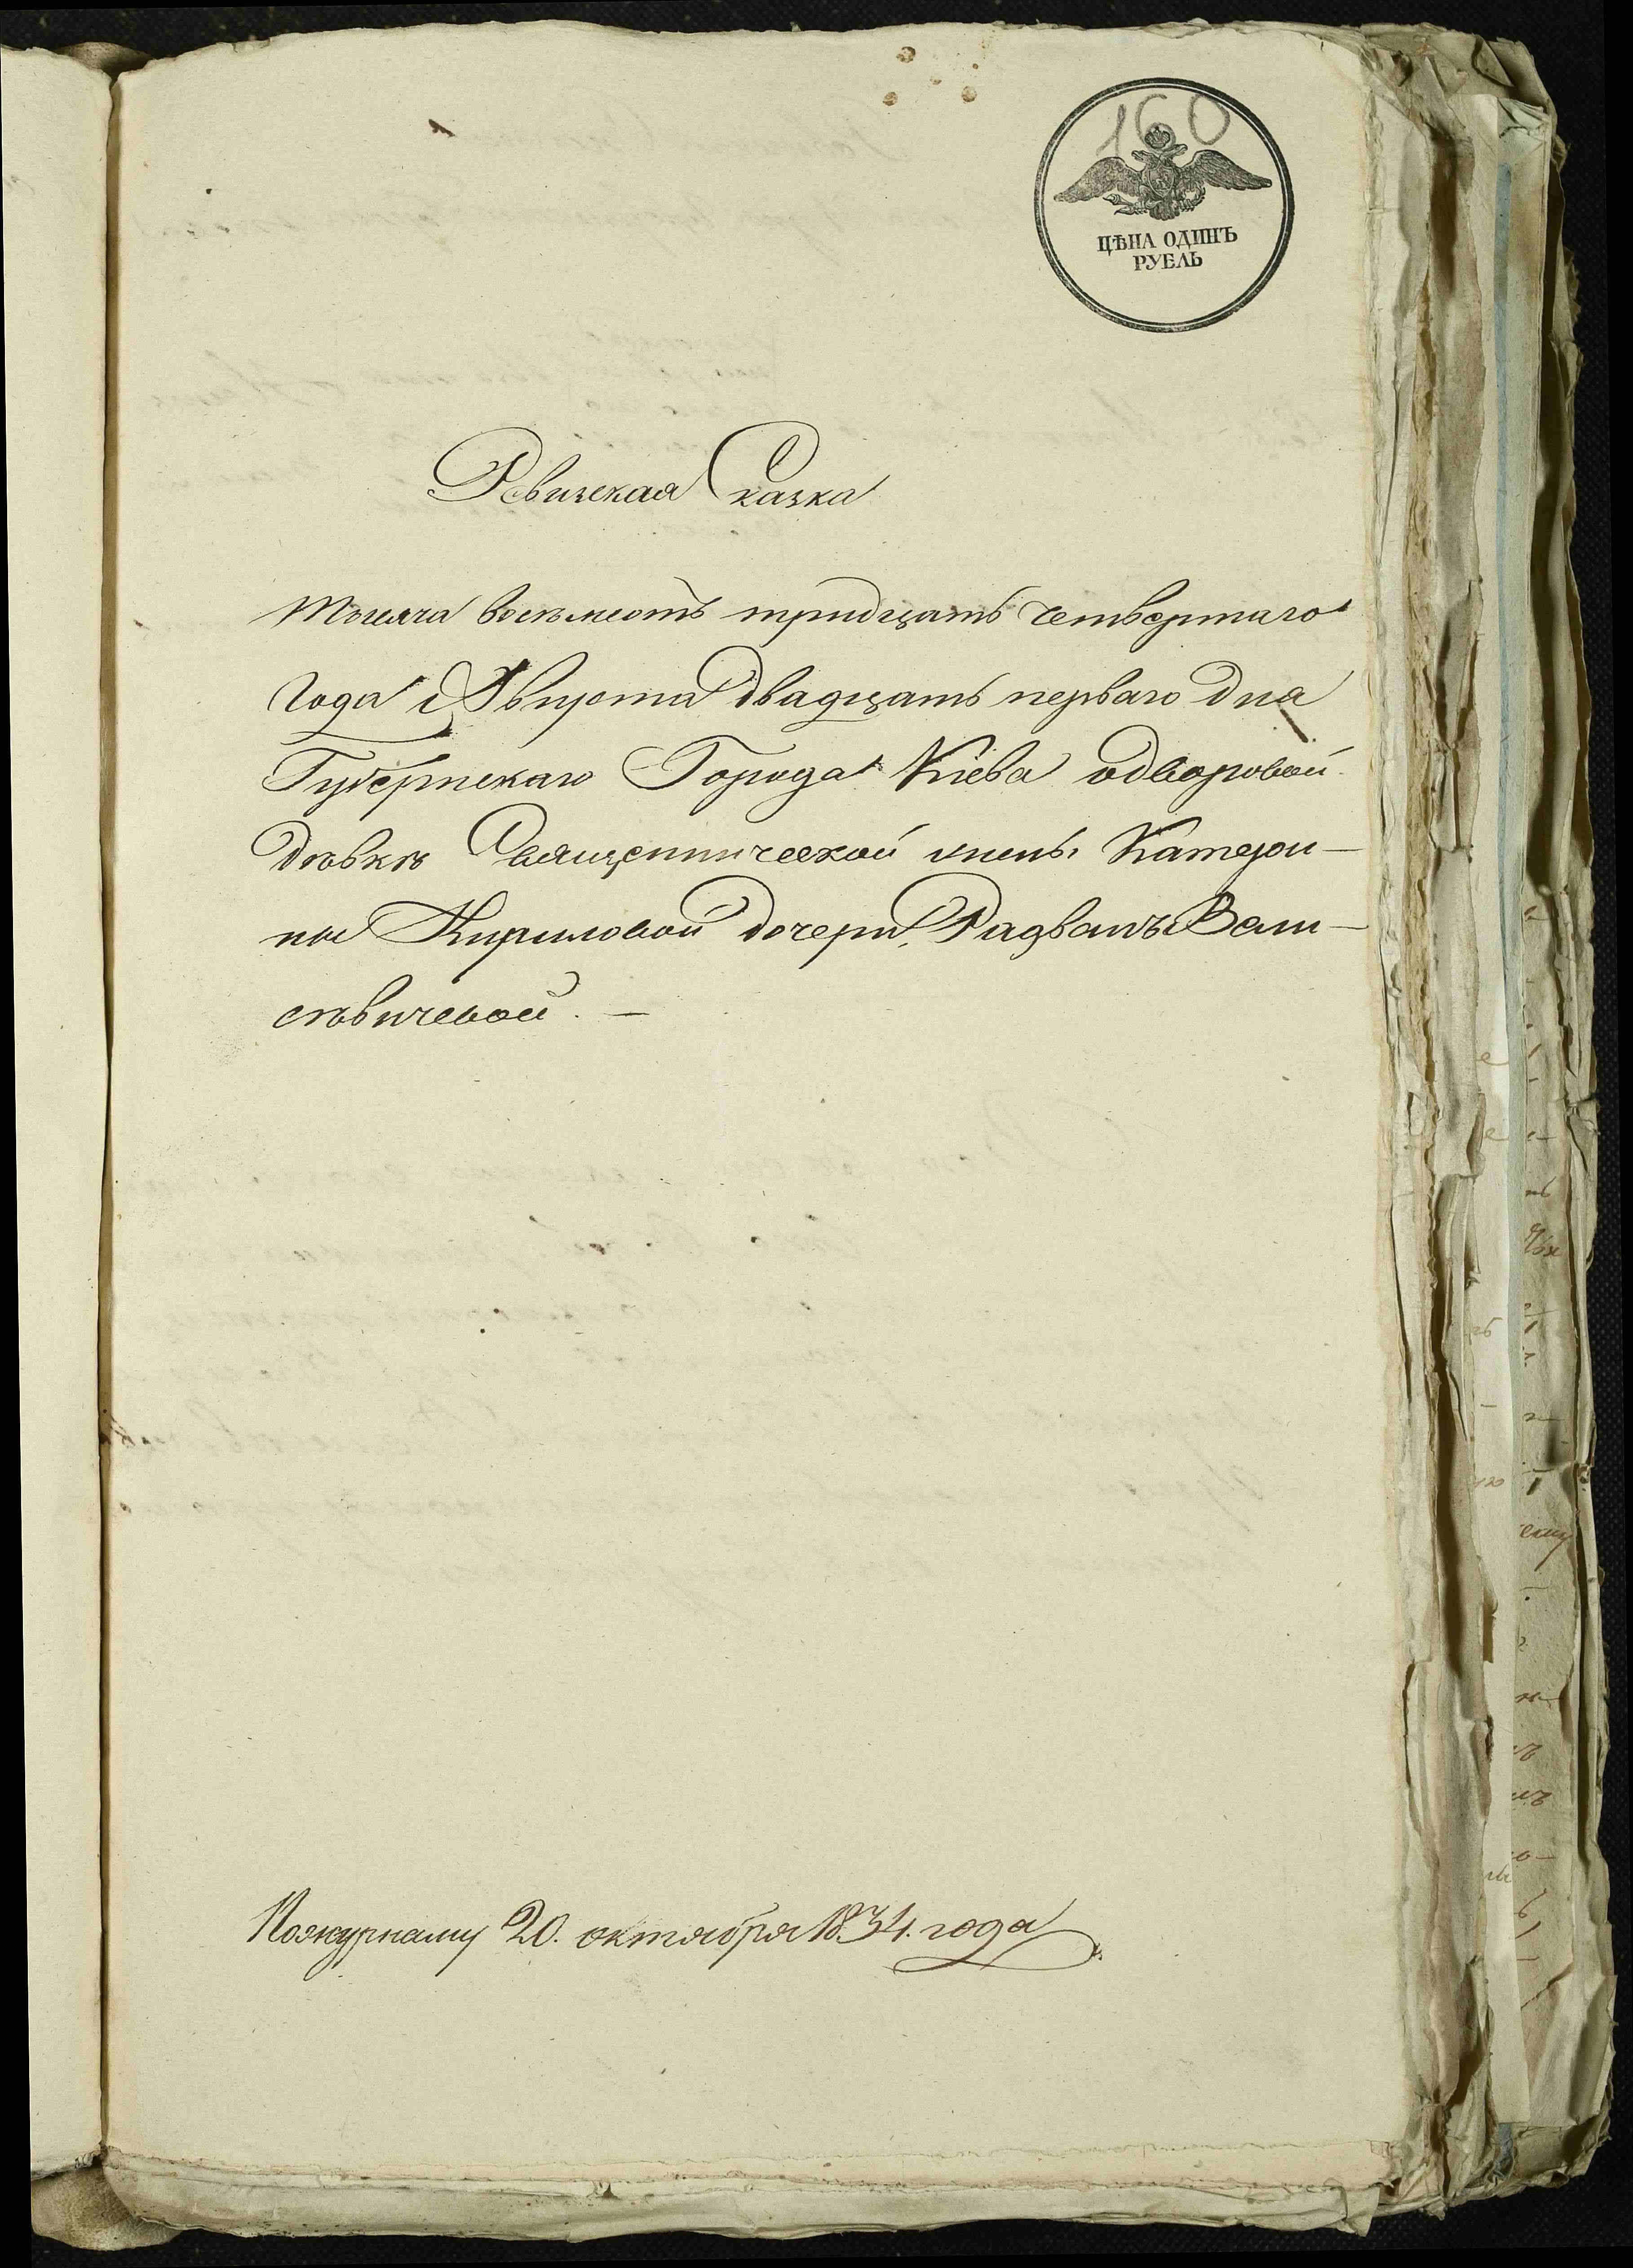 160
ЦѢНА ОДИНЪ
РУБЛЬ
Ревизская Сказка
Тысяча восемьсотъ тридцать четвертаго
Года Августа двадцать перваго дня
Губернскаго Города Кіева одворовой
дѣвкѣ Священнической жены Катери-
ны Кириловой дочери, Радзванъ
сѣвичевой. —
Пожурналу 20. октября 1834. года